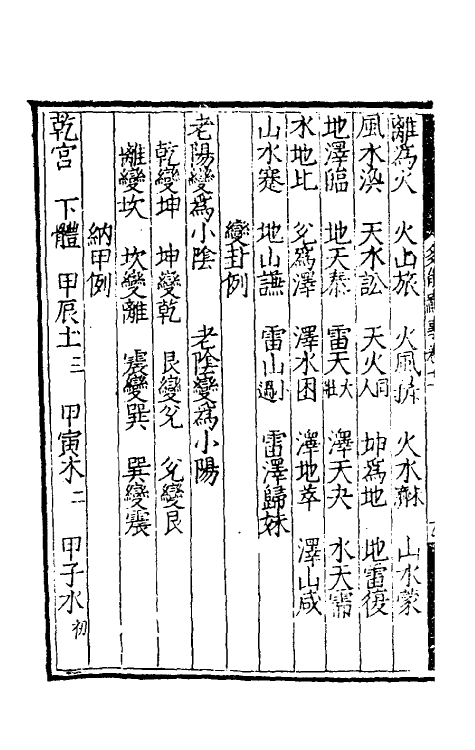 離為火　火山旅　火風鼎　火水濟　山水蒙
風水渙　天水訟　天火同人　坤為地　地雷復
地澤臨　地天泰　雷天大壯　澤天夬　水天需
水地比　兌為澤　澤水困　澤地萃　澤山咸
山水蹇　地山謙　雷山小過　雷澤歸妹
變卦例
老陽變為小陰　老陰變為小陽
乾變坤　坤變乾　艮變兌　兌變艮
離變坎　坎變離　震變巽　巽變震
納甲例
乾宮　下體　甲辰土三　甲寅木二　甲子水初